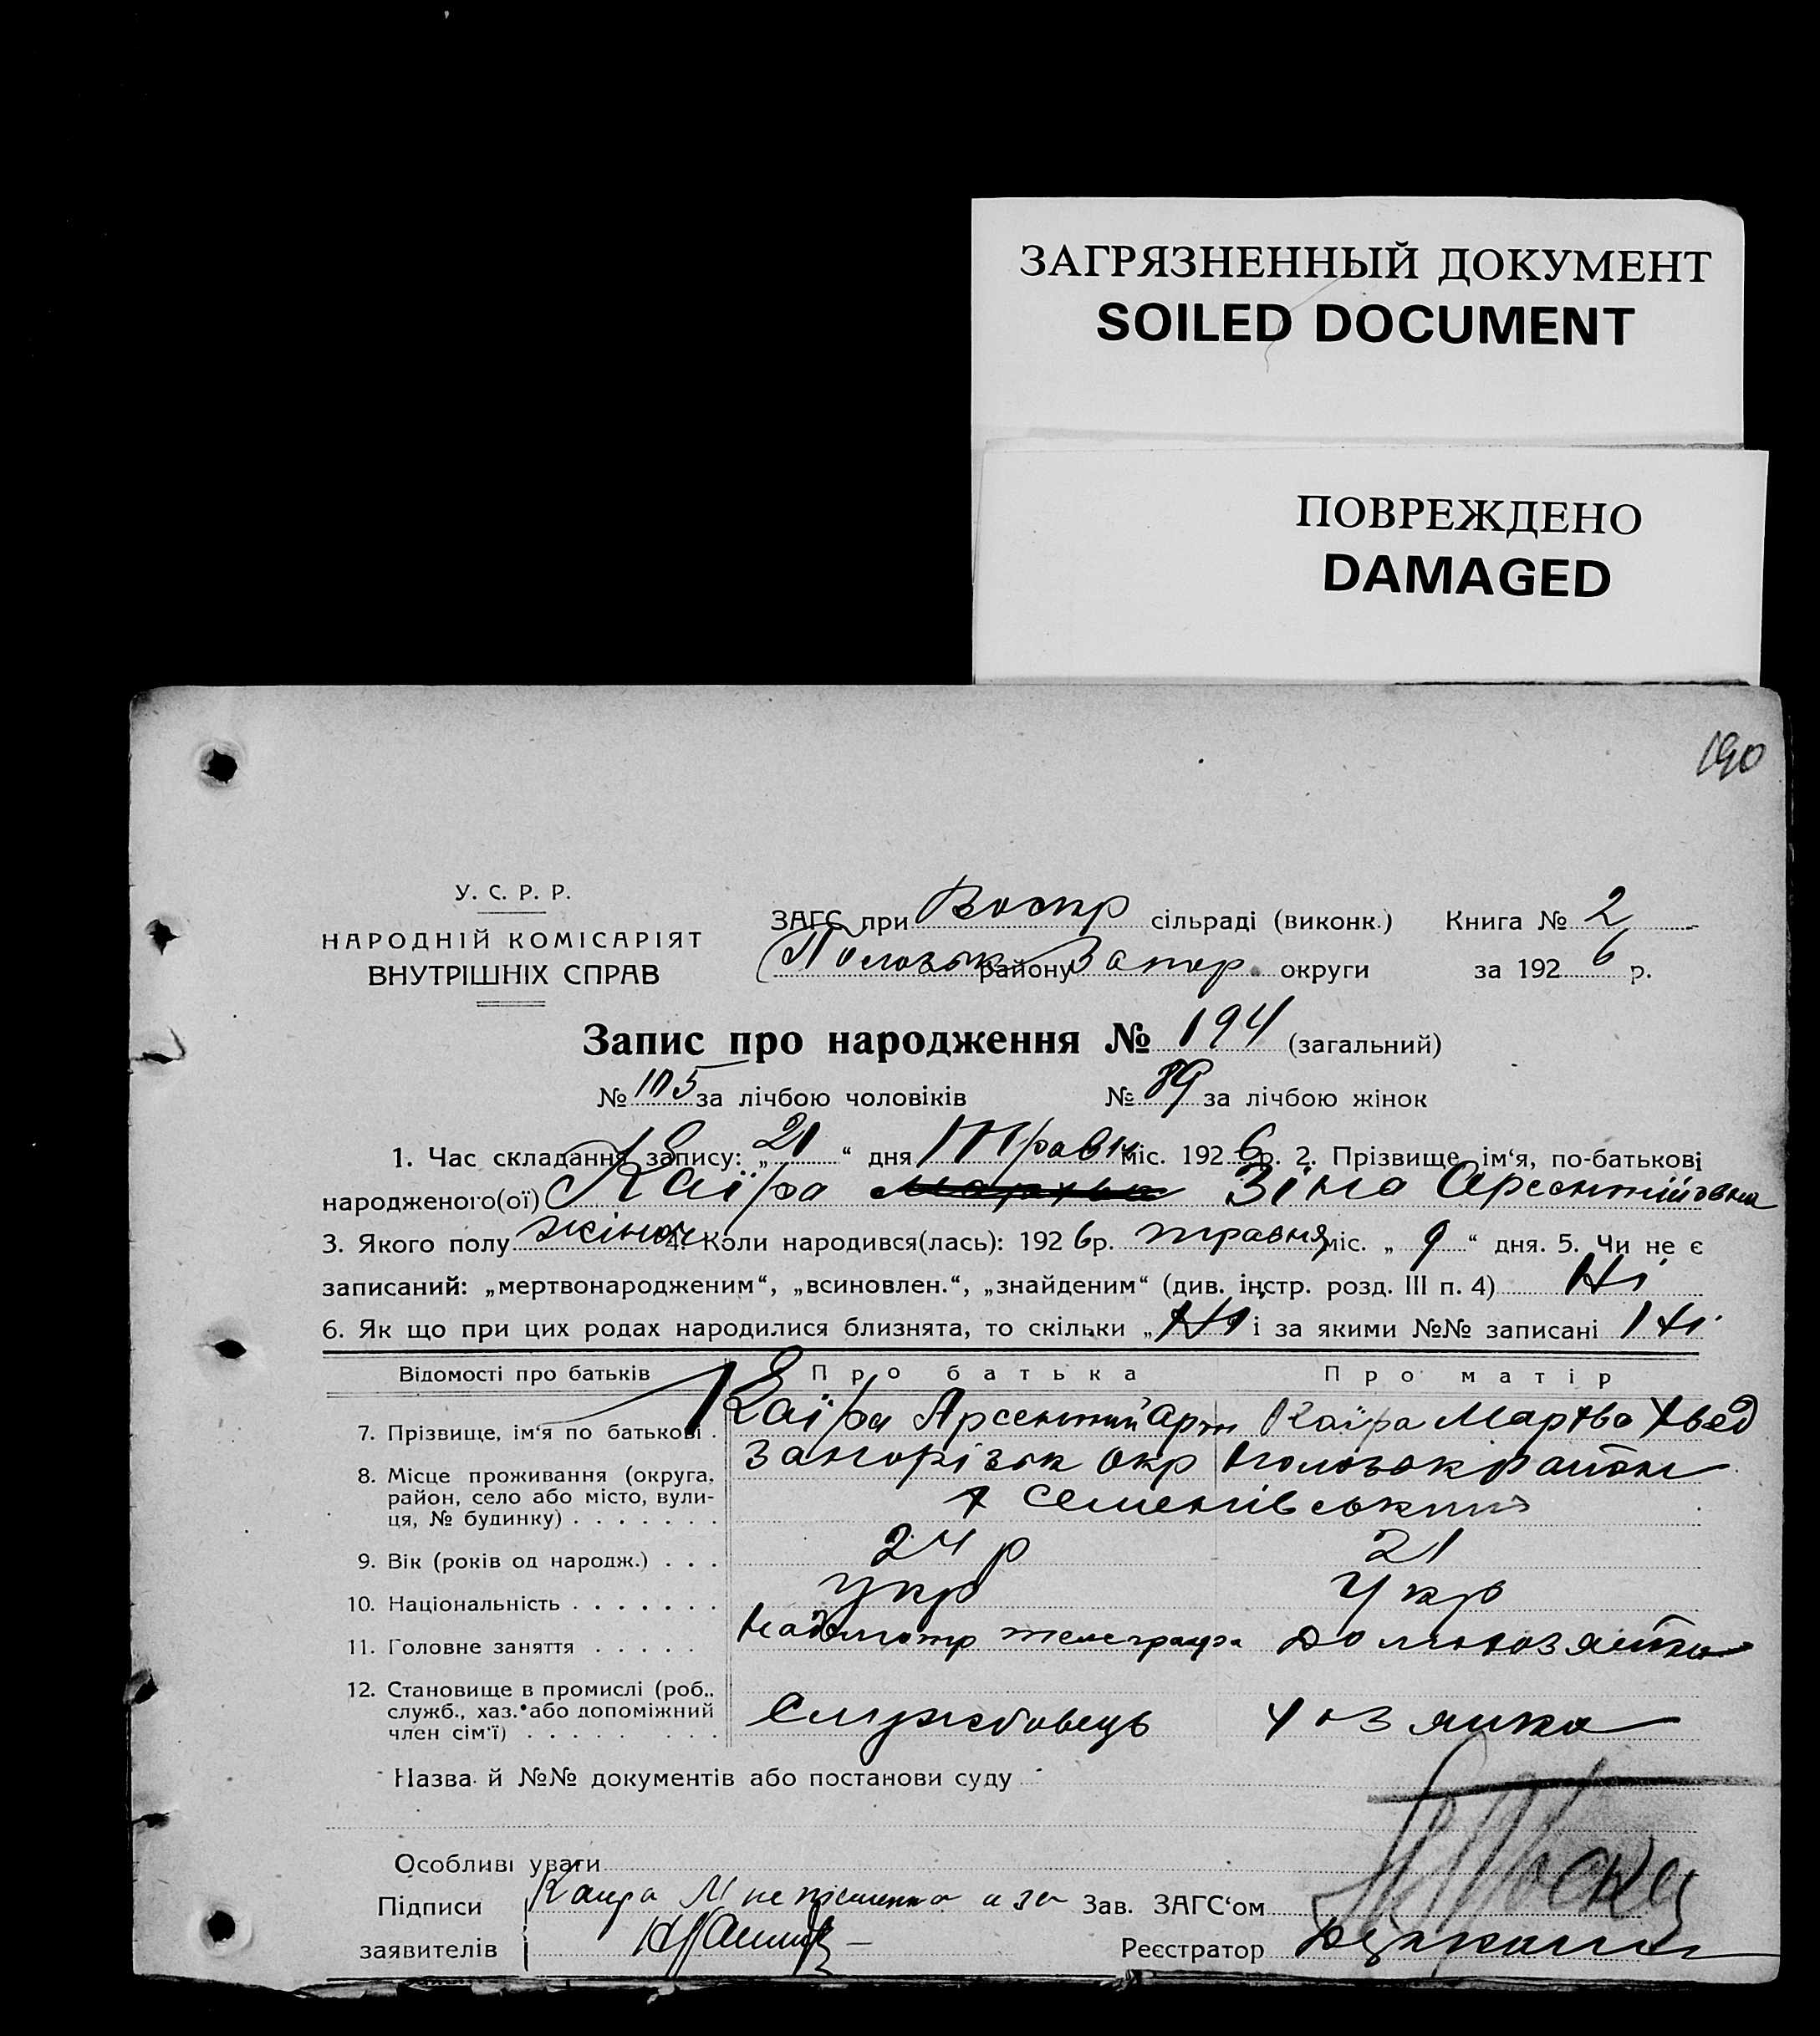 ЗАГРЯЗНЕННЫЙ ДОКУМЕНТ
SOILED DOCUMENT
ПОВРЕЖДЕНО
DAMAGED
190
У. С. Р. Р.
НАРОДНІЙ КОМІСАРІЯТ
ВНУТРІШНІХ СПРАВ
ЗАГС при сільраді (виконк.) Книга № 2
району Запор. округи за 1926 р.
Запис про народження № 194 (загальний)
№ 105 за лічбою чоловіків № 89 за лічбою жінок
1. Час складання запису: „21“ дня Травн міс. 1926 р. 2. Прізвище, ім‘я, по-батькові
народженого(ої) Каїра Зіна Арсентиійовна
3. Якого полу жіноч 4. Коли народився(лась): 1926 р. травня міс. „9“ дня. 5. Чи не є
записаний: „мертвонародженим“, „всиновлен.“, „знайденим“ (див. інстр. розд. III п. 4) Ні
6. Як що при цих родах народилися близнята, то скільки „Ні і за якими №№ записані Ні
Відомості про батьків Про батька Про матір
7. Прізвище, ім‘я по батькові . Каїра Арсентий Арт Каїра Мархва Хвед
8. Місце проживання (округа, район, село або місто, вулиця, № будинку) . . . . . . . Запорізьк окр район
х Семенівський
9. Вік (років од народж.) . . . 24 р 21
10. Національність . . . . . . . укр Укр
11. Головне заняття . . . . . Надсмотр телеграфа Домохозяйка
12. Становище в промислі (роб., служб., хаз. або допоміжний член сім‘ї) . . . . . . . . Службовець Хозяйка
Назва й №№ документів або постанови суду
Особливі уваги
Підписи Каира М не пісменна а за Зав. ЗАГС‘ом
заявителів Реєстратор